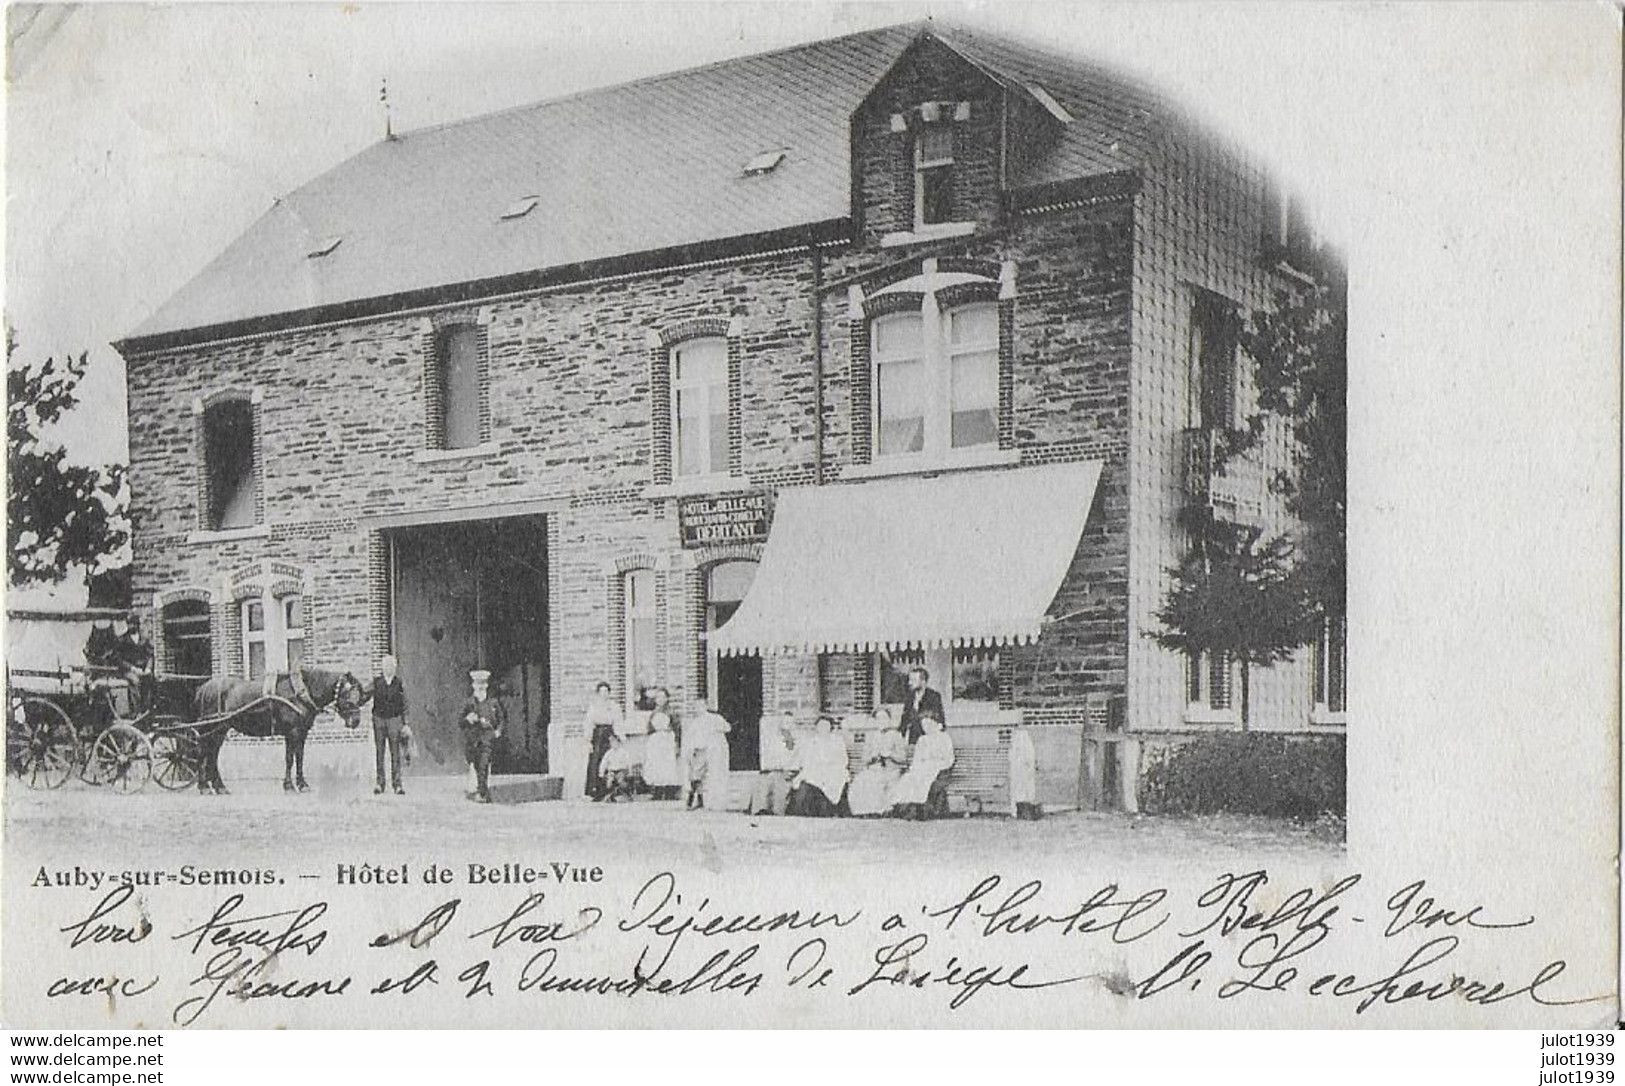 HOTEL DE BELLE-VUE
DEBITANT
Auby-sur-Semois. — Hôtel de Belle-Vue
bon temps et bon déjeuner à l'hotel Belle-Vue
avec Jeanne et 2 demoiselles de Liège V. Lechevrel
www.delcampe.net
www.delcampe.net
www.delcampe.net
julot1939
julot1939
julot1939